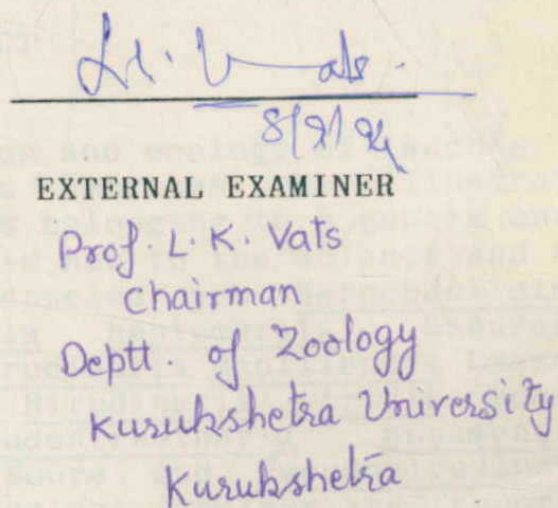 L.K. Vats.
EXTERNAL EXAMINER
Prof. L. K. Vats
Chairman
Deptt. of Zoology
Kurukshetra University
Kurukshetra